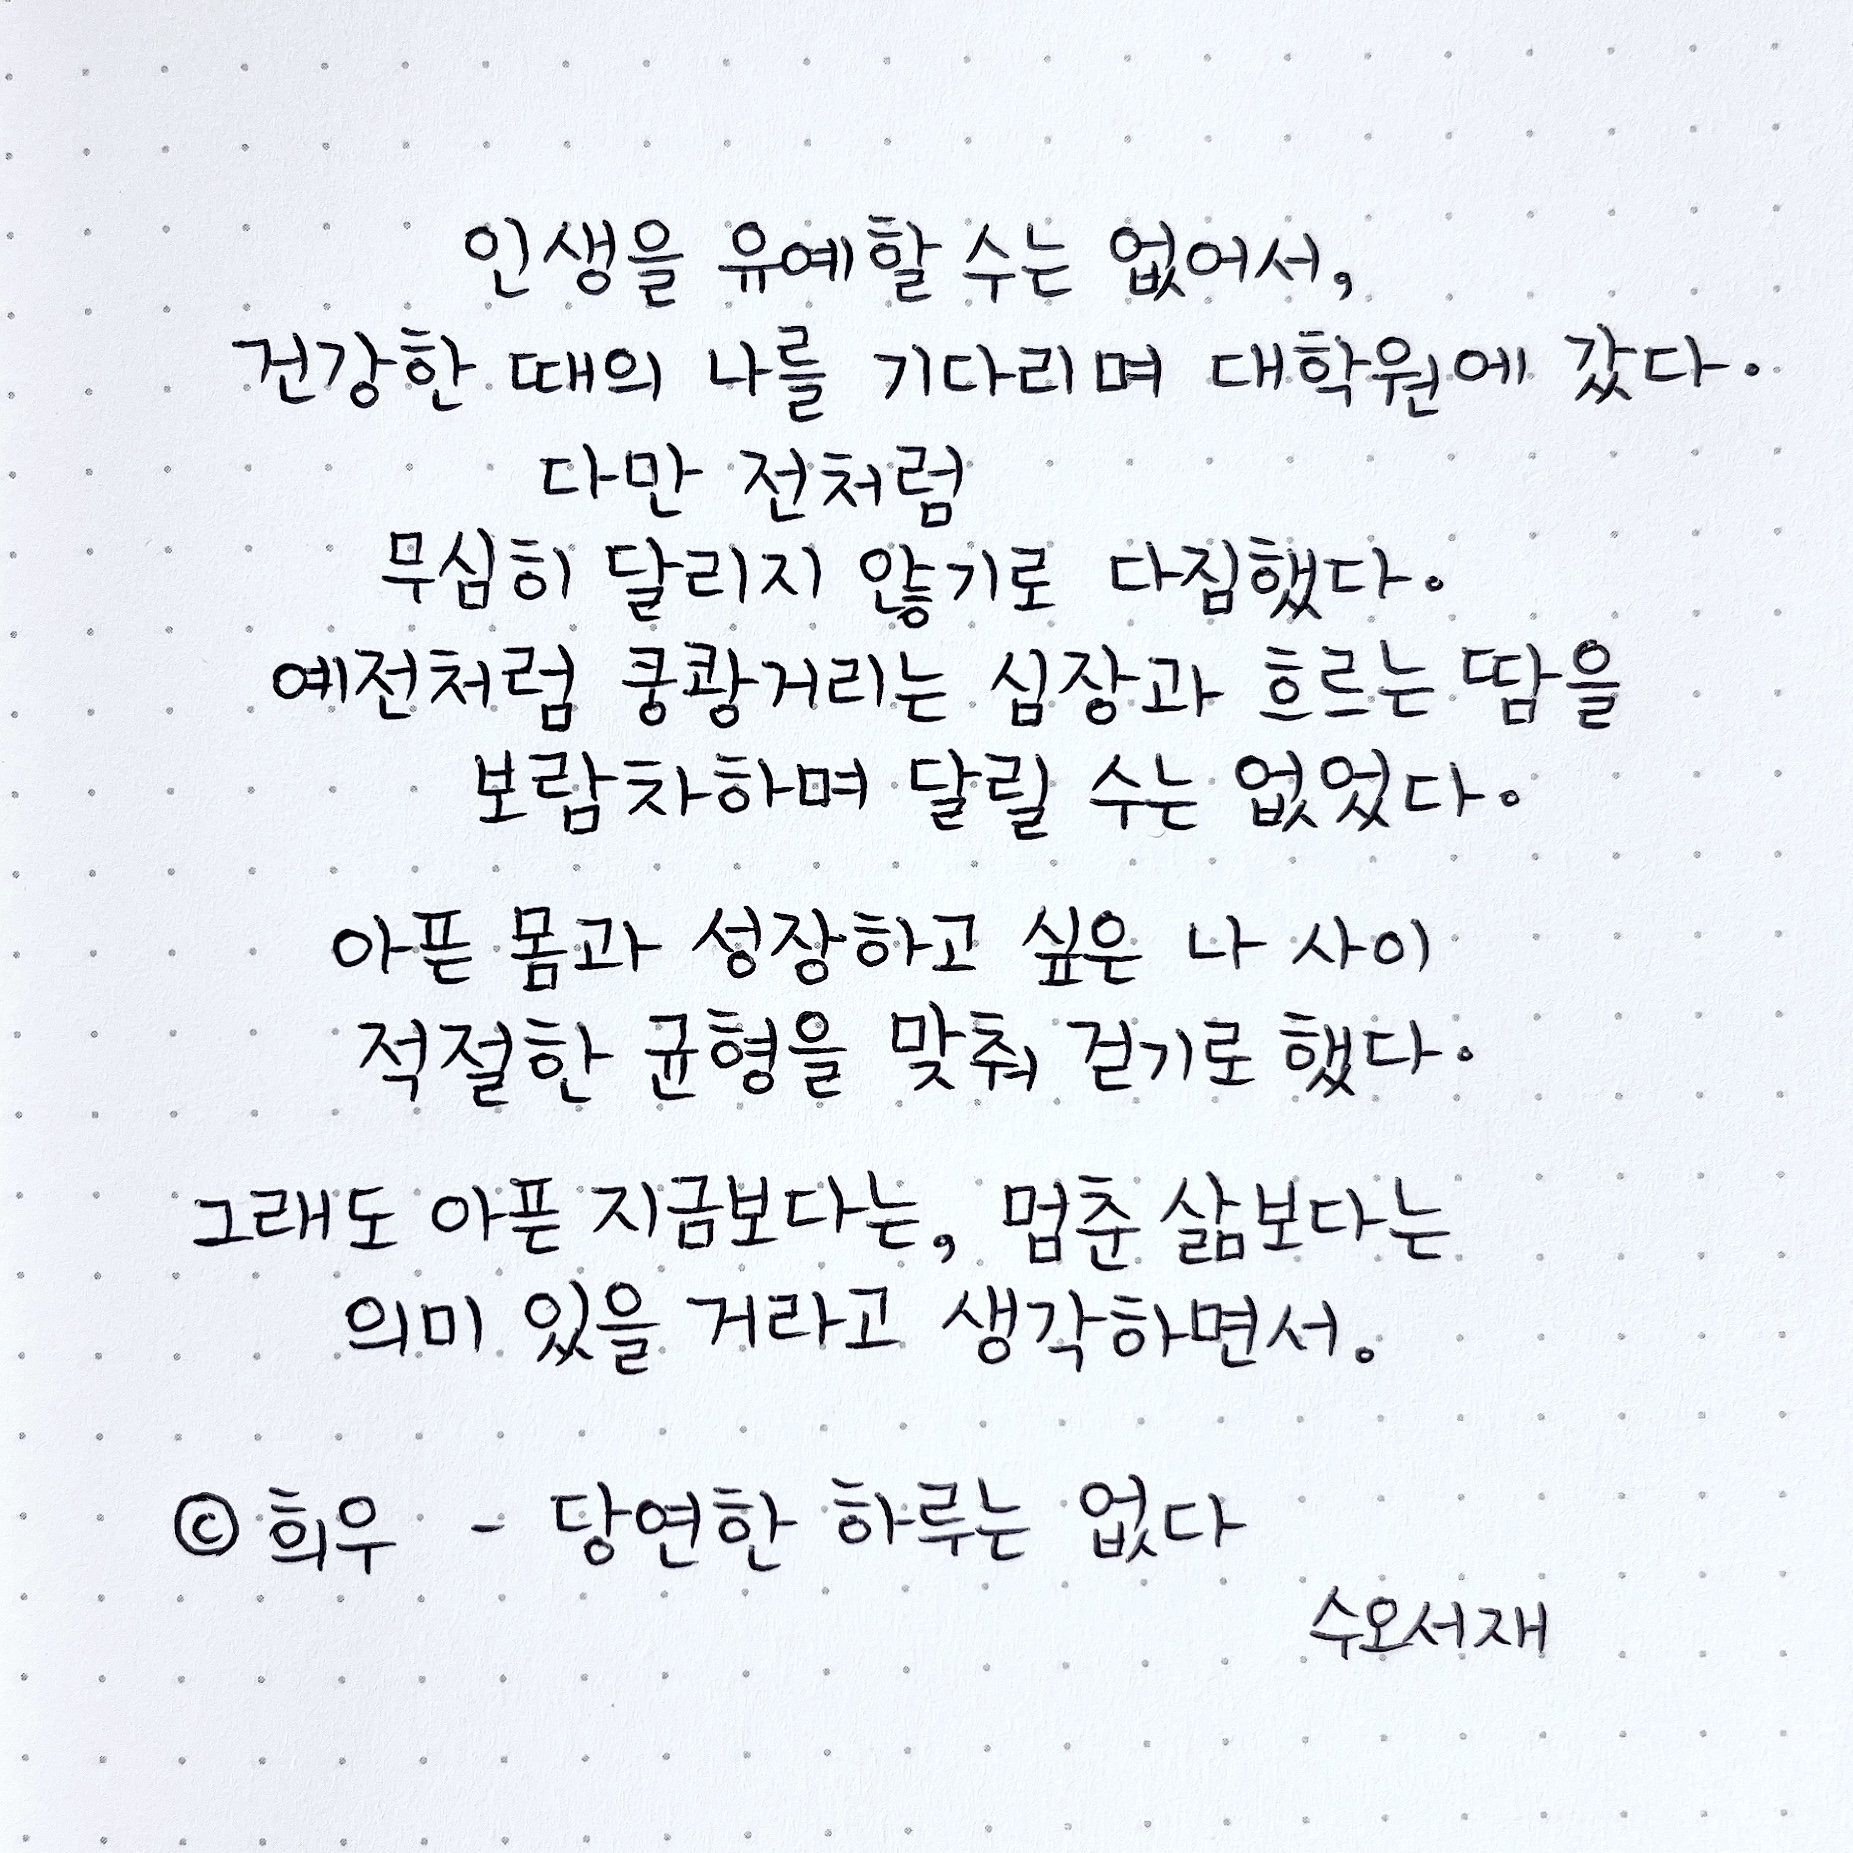 인생을 유예할 수는 없어서,
건강한 때의 나를 기다리며 대학원에 갔다.
다만 전처럼
무심히 달리지 않기로 다짐했다.
예전처럼 쿵쾅거리는 심장과 흐르는 땀을
보람차하며 달릴 수는 없었다.
아픈 몸과 성장하고 싶은 나 사이
적절한 균형을 맞춰 걷기로 했다.
그래도 아픈 지금보다는, 멈춘 삶보다는
의미 있을 거라고 생각하면서.
© 희우 - 당연한 하루는 없다
수오서재